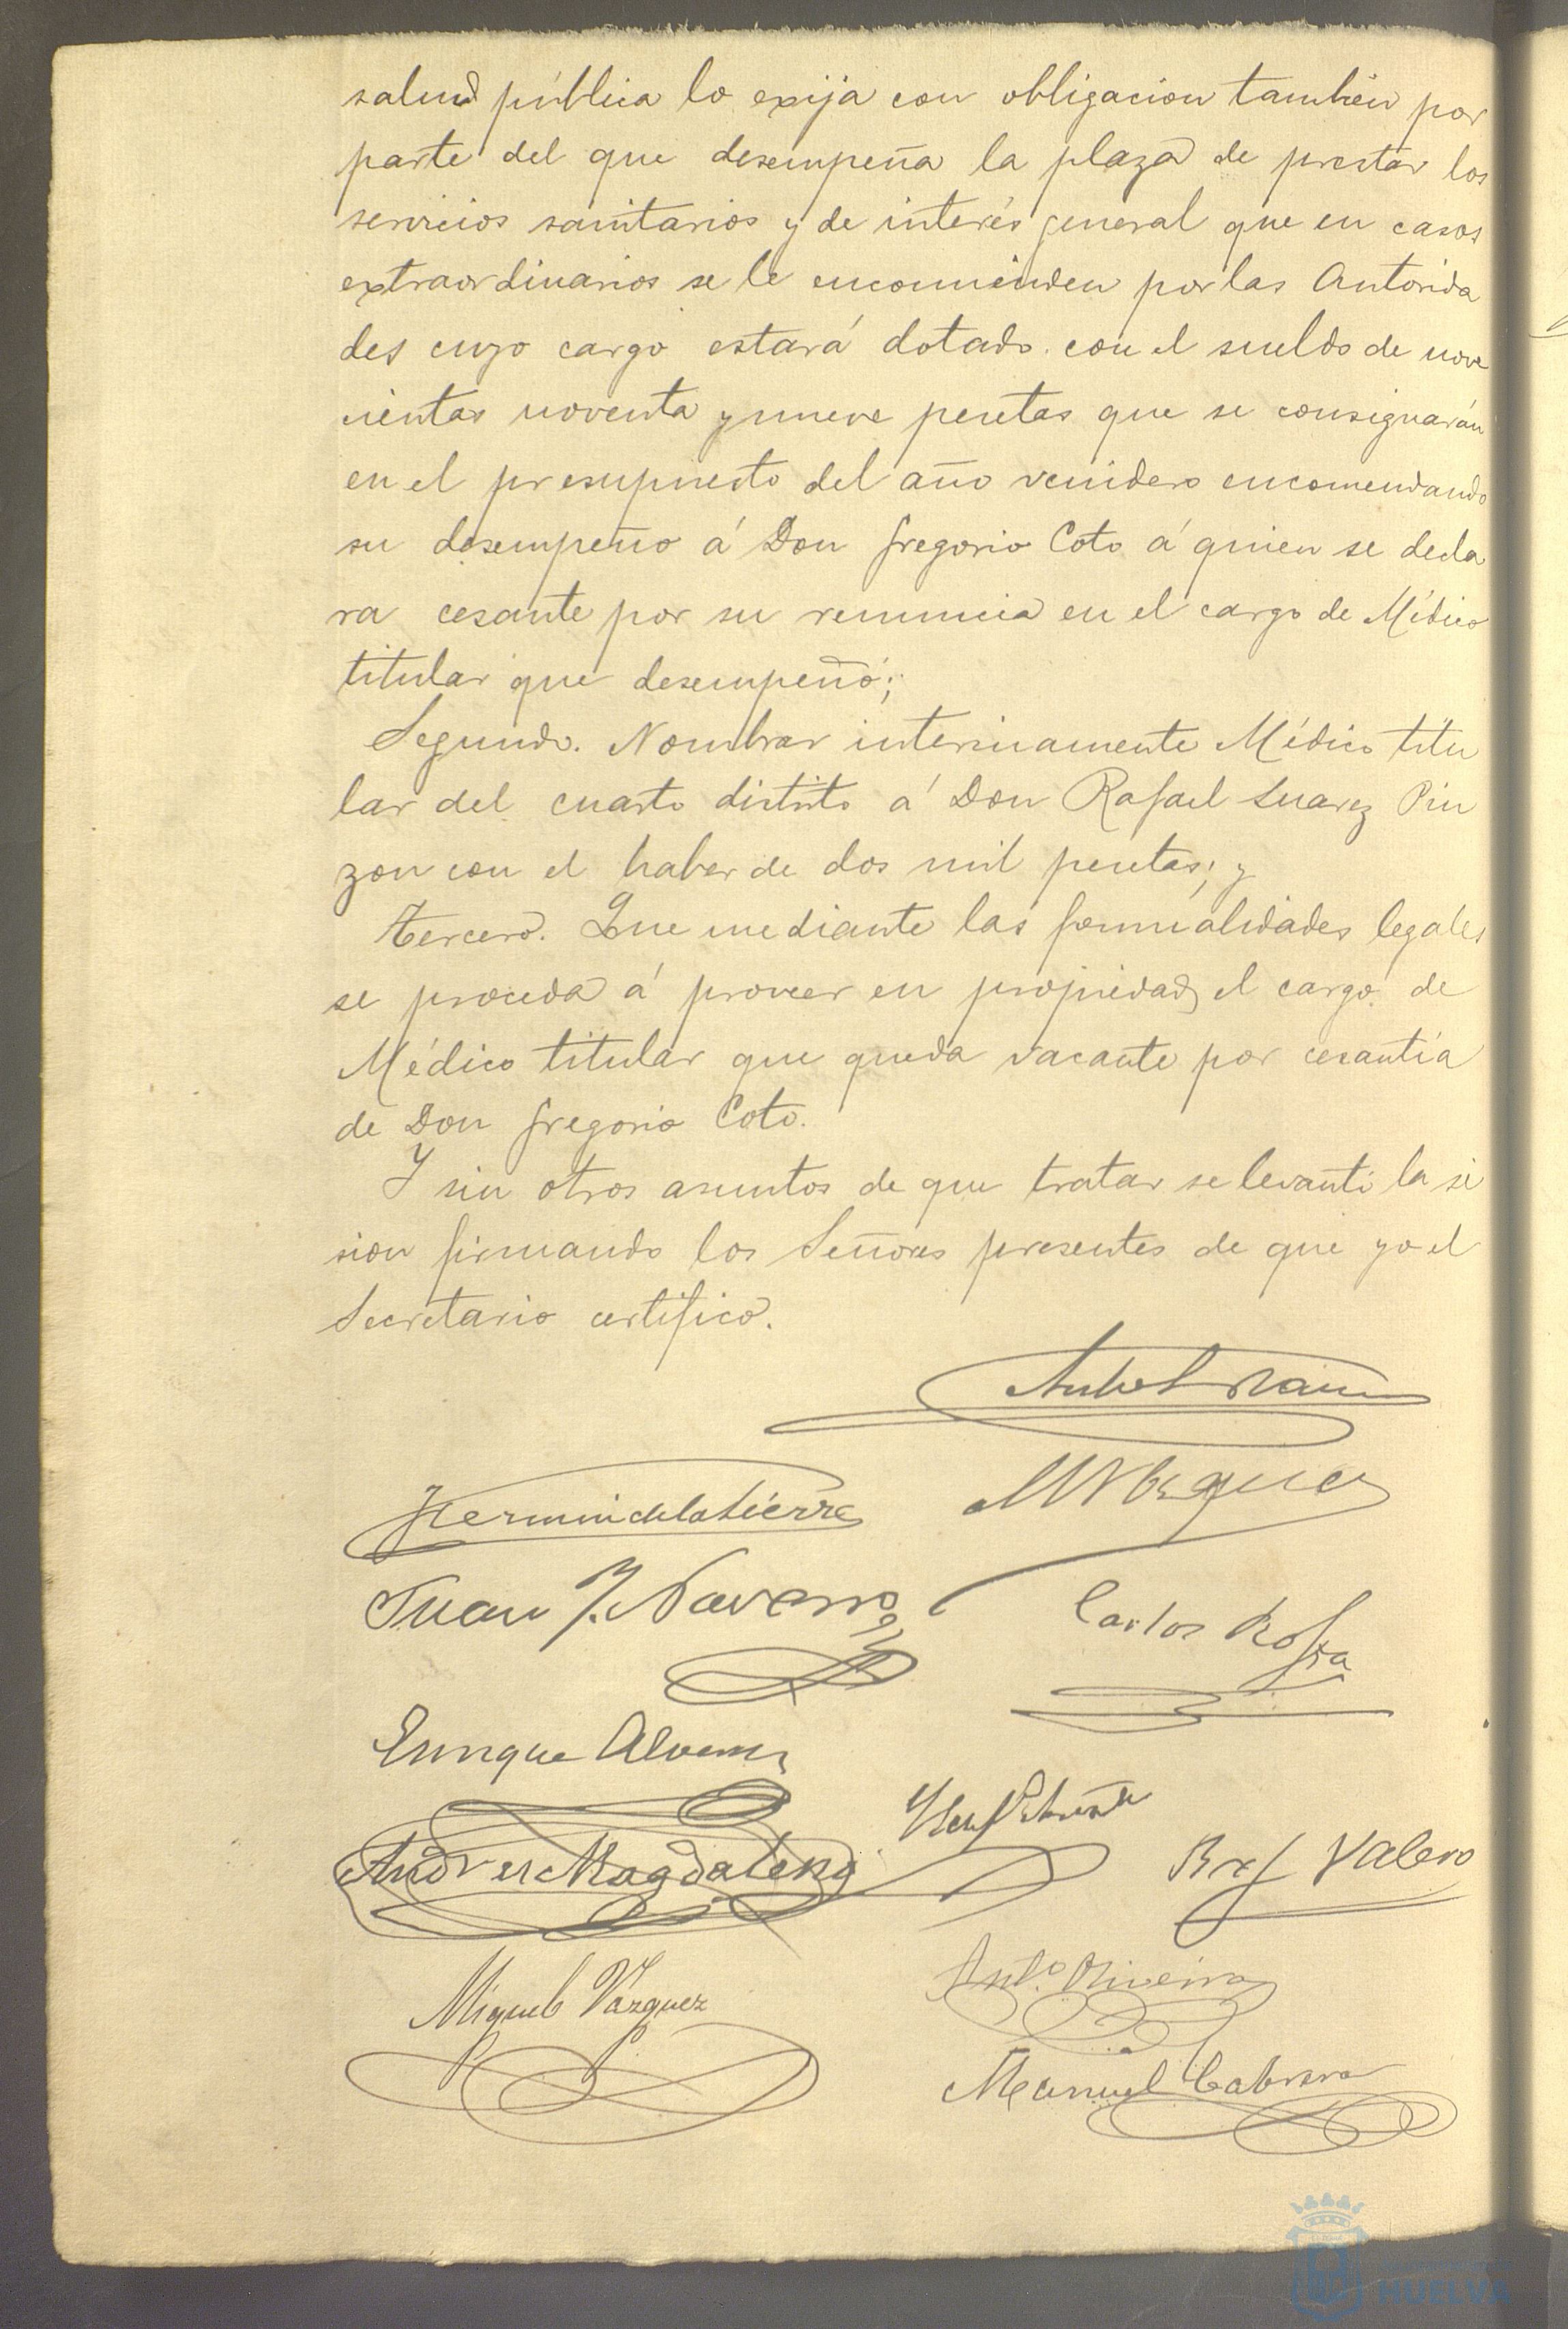 salud pública lo exija con obligacion también por
parte del que desempeña la plaza de prestar los
servicios sanitarios y de interés general que en casos
extraordinarios se le encomienden por las Autorida
des cuyo cargo estará dotado con el sueldo de nove
cientas noventa y nueve pesetas que se consignarán
en el presupuesto del año venidero encomendando
su desempeño á Don Gregorio Coto á quien se decla
ra cesante por su renuncia en el cargo de Médico
titular que desempeñó;
Segundo. Nombrar interinamente Médico titu
lar del cuarto distrito á Don Rafael Suarez Pin
zon con el haber de dos mil pesetas; y
Tercero. Que mediante las formalidades legales
se proceda á proveer en propiedad el cargo de
Médico titular que queda vacante por cesantía
de Don Gregorio Coto.
Y sin otros asuntos de que tratar se levantó la se
sion firmando los Señores presentes de que yo el
Secretario certifico.
M Vazquez
Juan J. Navarro
Carlos
Enrique Alvarez
Andres Magdalena
Raf Valero
Miguel Vazquez
Antº Oliveira
Manuel Cabrera
HUELVA